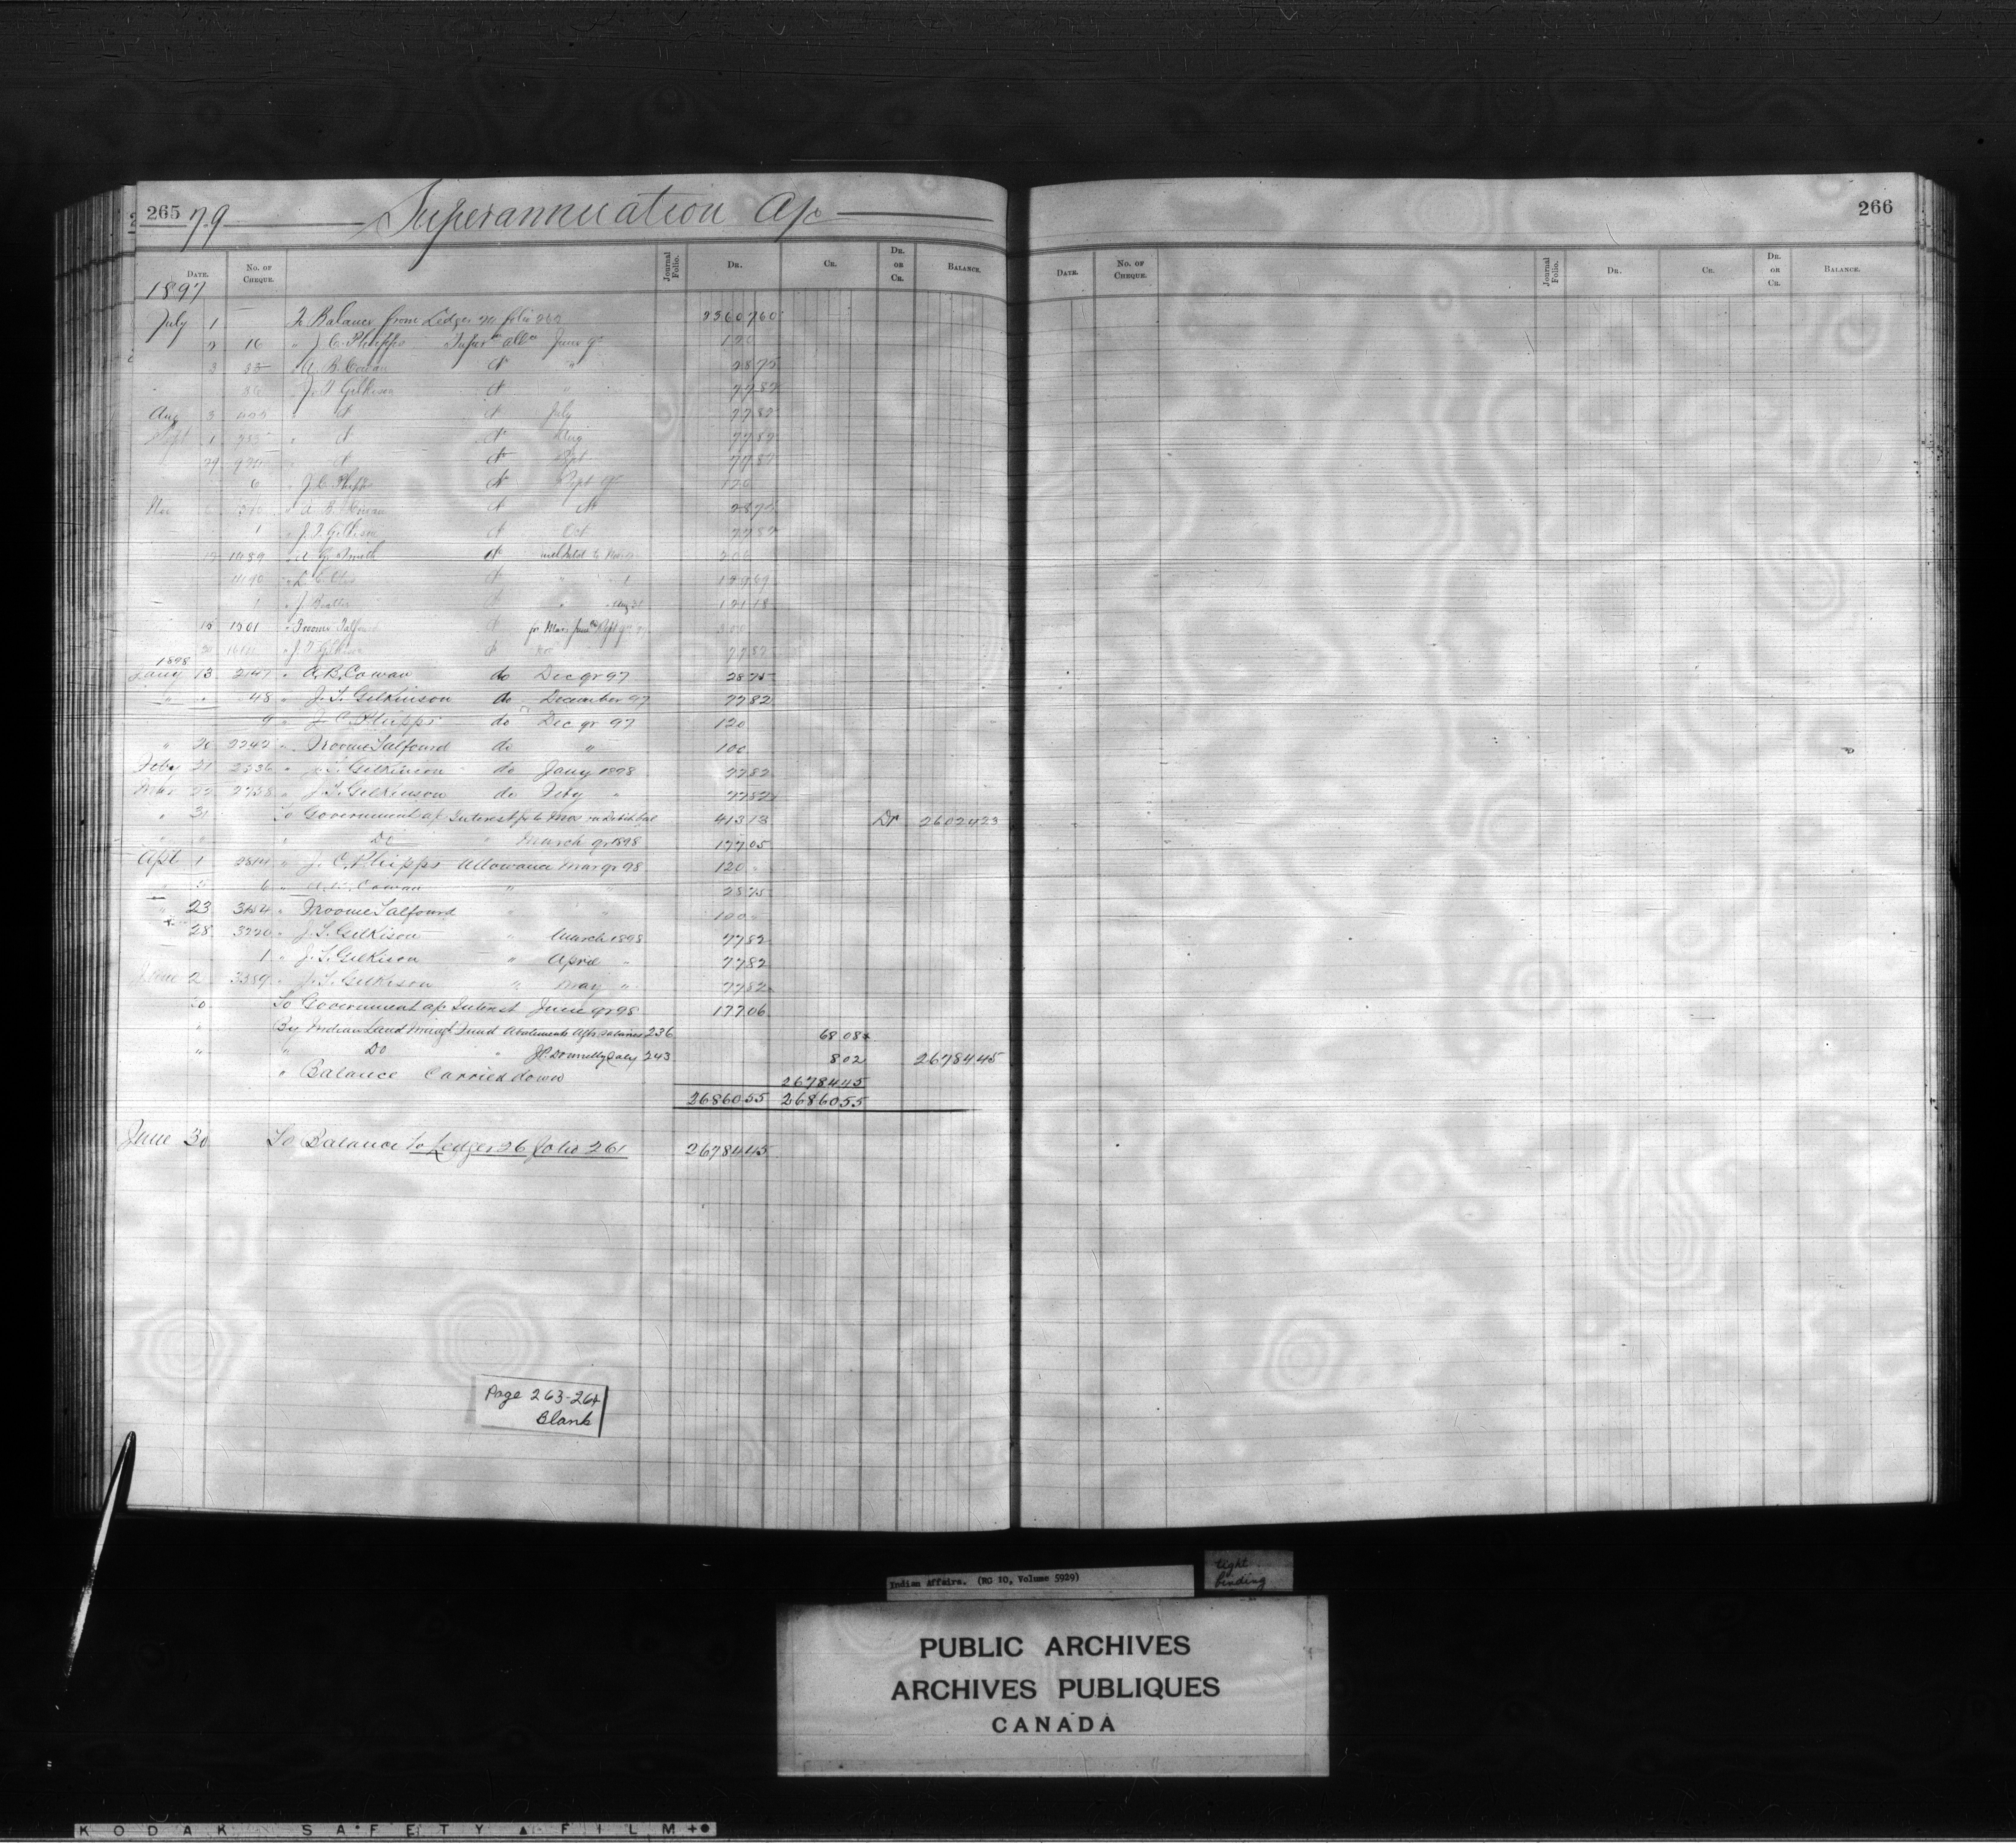 265 79 Superannuation A/c
DATE. No. OF CHEQUE. Journal Folio. DR. CR. DR. OR CR. BALANCE.
1897
July 1 To Balance from Ledger folio 2360760
2 16 " J. C. Phipps June qr 120
3 35 " A. B. Cowan do " 2875
" 36 " J. T. Gilkison do " 7782
Aug 3 " do do July 7782
Sept 1 " do do Aug 7782
29 " do do Sept 7782
6 " J. C. Phipps do Sept qr 120
Nov " A. B. Cowan do do 2875
1 " J. T. Gilkison do Oct 7782
1489 " A. G. Smith do 206
1490 " do "
1 " J. Aug 31 12118
15 1501 " Froome Talfourd do for Mar, June & Sept qrs 97 300
" J. T. Gilkison do Nov 7782
1898
Jany 13 2147 " A. B. Cowan do Dec qr 97 2875
" " 48 " J. T. Gilkinson do December 97 7782
9 " J. C. Phipps do Dec qr 97 120
" 20 2242 " Froome Talfourd do " 100
Feby 21 2536 " J. T. Gilkinson do Jany 1898 7782
Mar 22 2758 " J. T. Gilkinson do Feby " 7782
" 31 To Government a/c Interest for 6 Mos on Debit bal 41313 Dr 2602423
" " " Do " March qr 1898 17705
Apl 1 2814 " J. C. Phipps Allowance Mar qr 98 120
" 6 " A. B. Cowan " " 2875
" 23 3154 " Froome Talfourd " " 100
" 28 3220 " J. T. Gilkison " March 1898 7782
1 " J. T. Gilkison " April " 7782
June 2 3389 " J. T. Gilkison " May " 7782
30 To Government a/c Interest June qr 98 17706
" By Indian Land Mngt Fund Abatements Offrs Salaries 236 6808
" " Do " J P Donnelly Saly 243 802 2678445
" Balance Carried down 2678445
2686055 2686055
June 30 To Balance To Ledger 26 folio 261 2678445
Page 263-264
Blank
266
DATE. No. OF CHEQUE. Journal Folio. DR. CR. DR. OR CR. BALANCE.
Indian Affairs. (RG 10, Volume 5929)
tight
binding
PUBLIC ARCHIVES
ARCHIVES PUBLIQUES
CANADA
KODAK SAFETY FILM